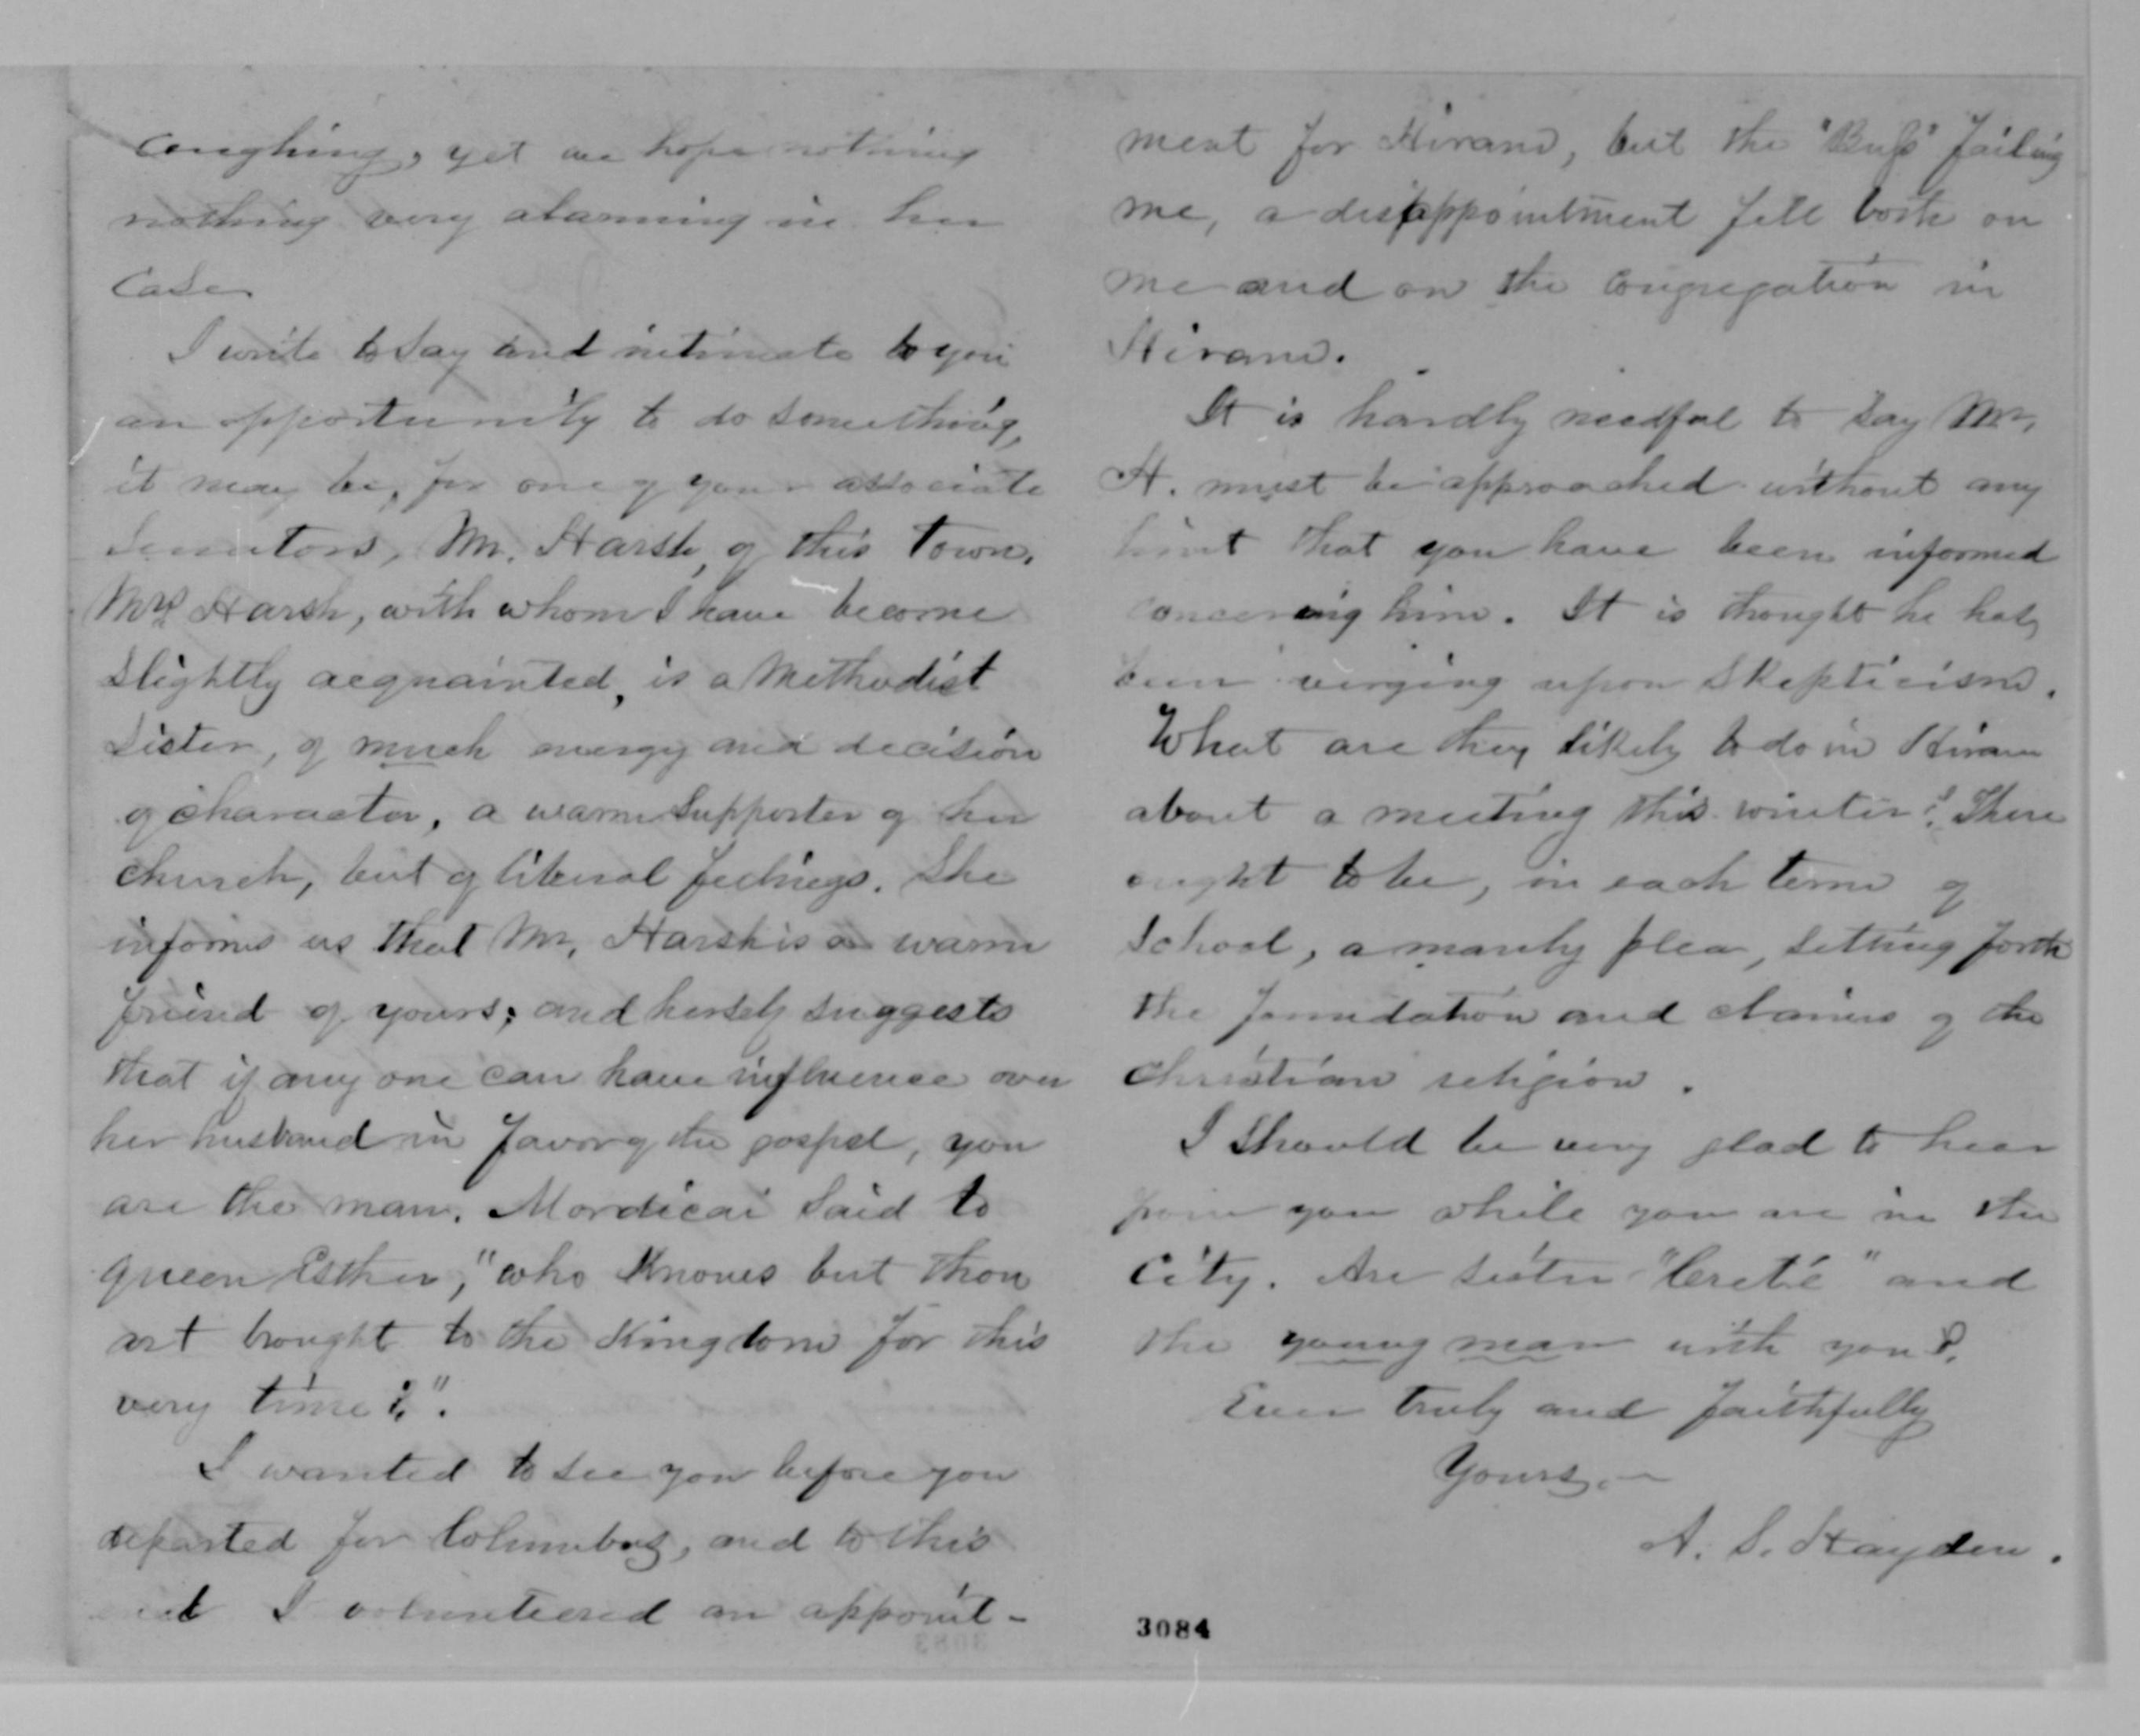 coughing, yet we hope nothing
nothing very alarming in her
case.
I write to say and intimate to you
an opportunity to do something,
it may be, for one of your associate
Senators, Mr. Harsh, of this town.
Mrs Harsh, with whom I have become
slightly acquainted, is a Methodist
sister, of much energy and decision
of character, a warm supporter of her
church, but of liberal feelings. She
informs us that Mr. Harsh is a warm
friend of yours; and herself suggests
that if any one can have influence over
her husband in favor of the gospel, you
are the man. Mordicai said to
queen Esther, "who knows but thou
art brought to the Kingdom for this
very time?".
I wanted to see you before you
departed for Columbus, and to this
end I volunteered an appoint-
ment for Hiram, but the "Buss" failing
me, a disappointment fell both on
me and on the congregation in
Hiram.
It is hardly needful to say Mr.
H. must be approached without any
hint that you have been informed
concerning him. It is thought he has
been verging upon skepticism.
What are they likely to do in Hiram
about a meeting this winter? There
ought to be, in each term of
School, a manly plea, setting forth
the foundation and claims of the
Christian religion.
I should be very glad to hear
from you while you are in the
City. Are sister "Crete" and
the young man with you?
Ever truly and faithfully
Yours,—
A. S. Hayden.
3084